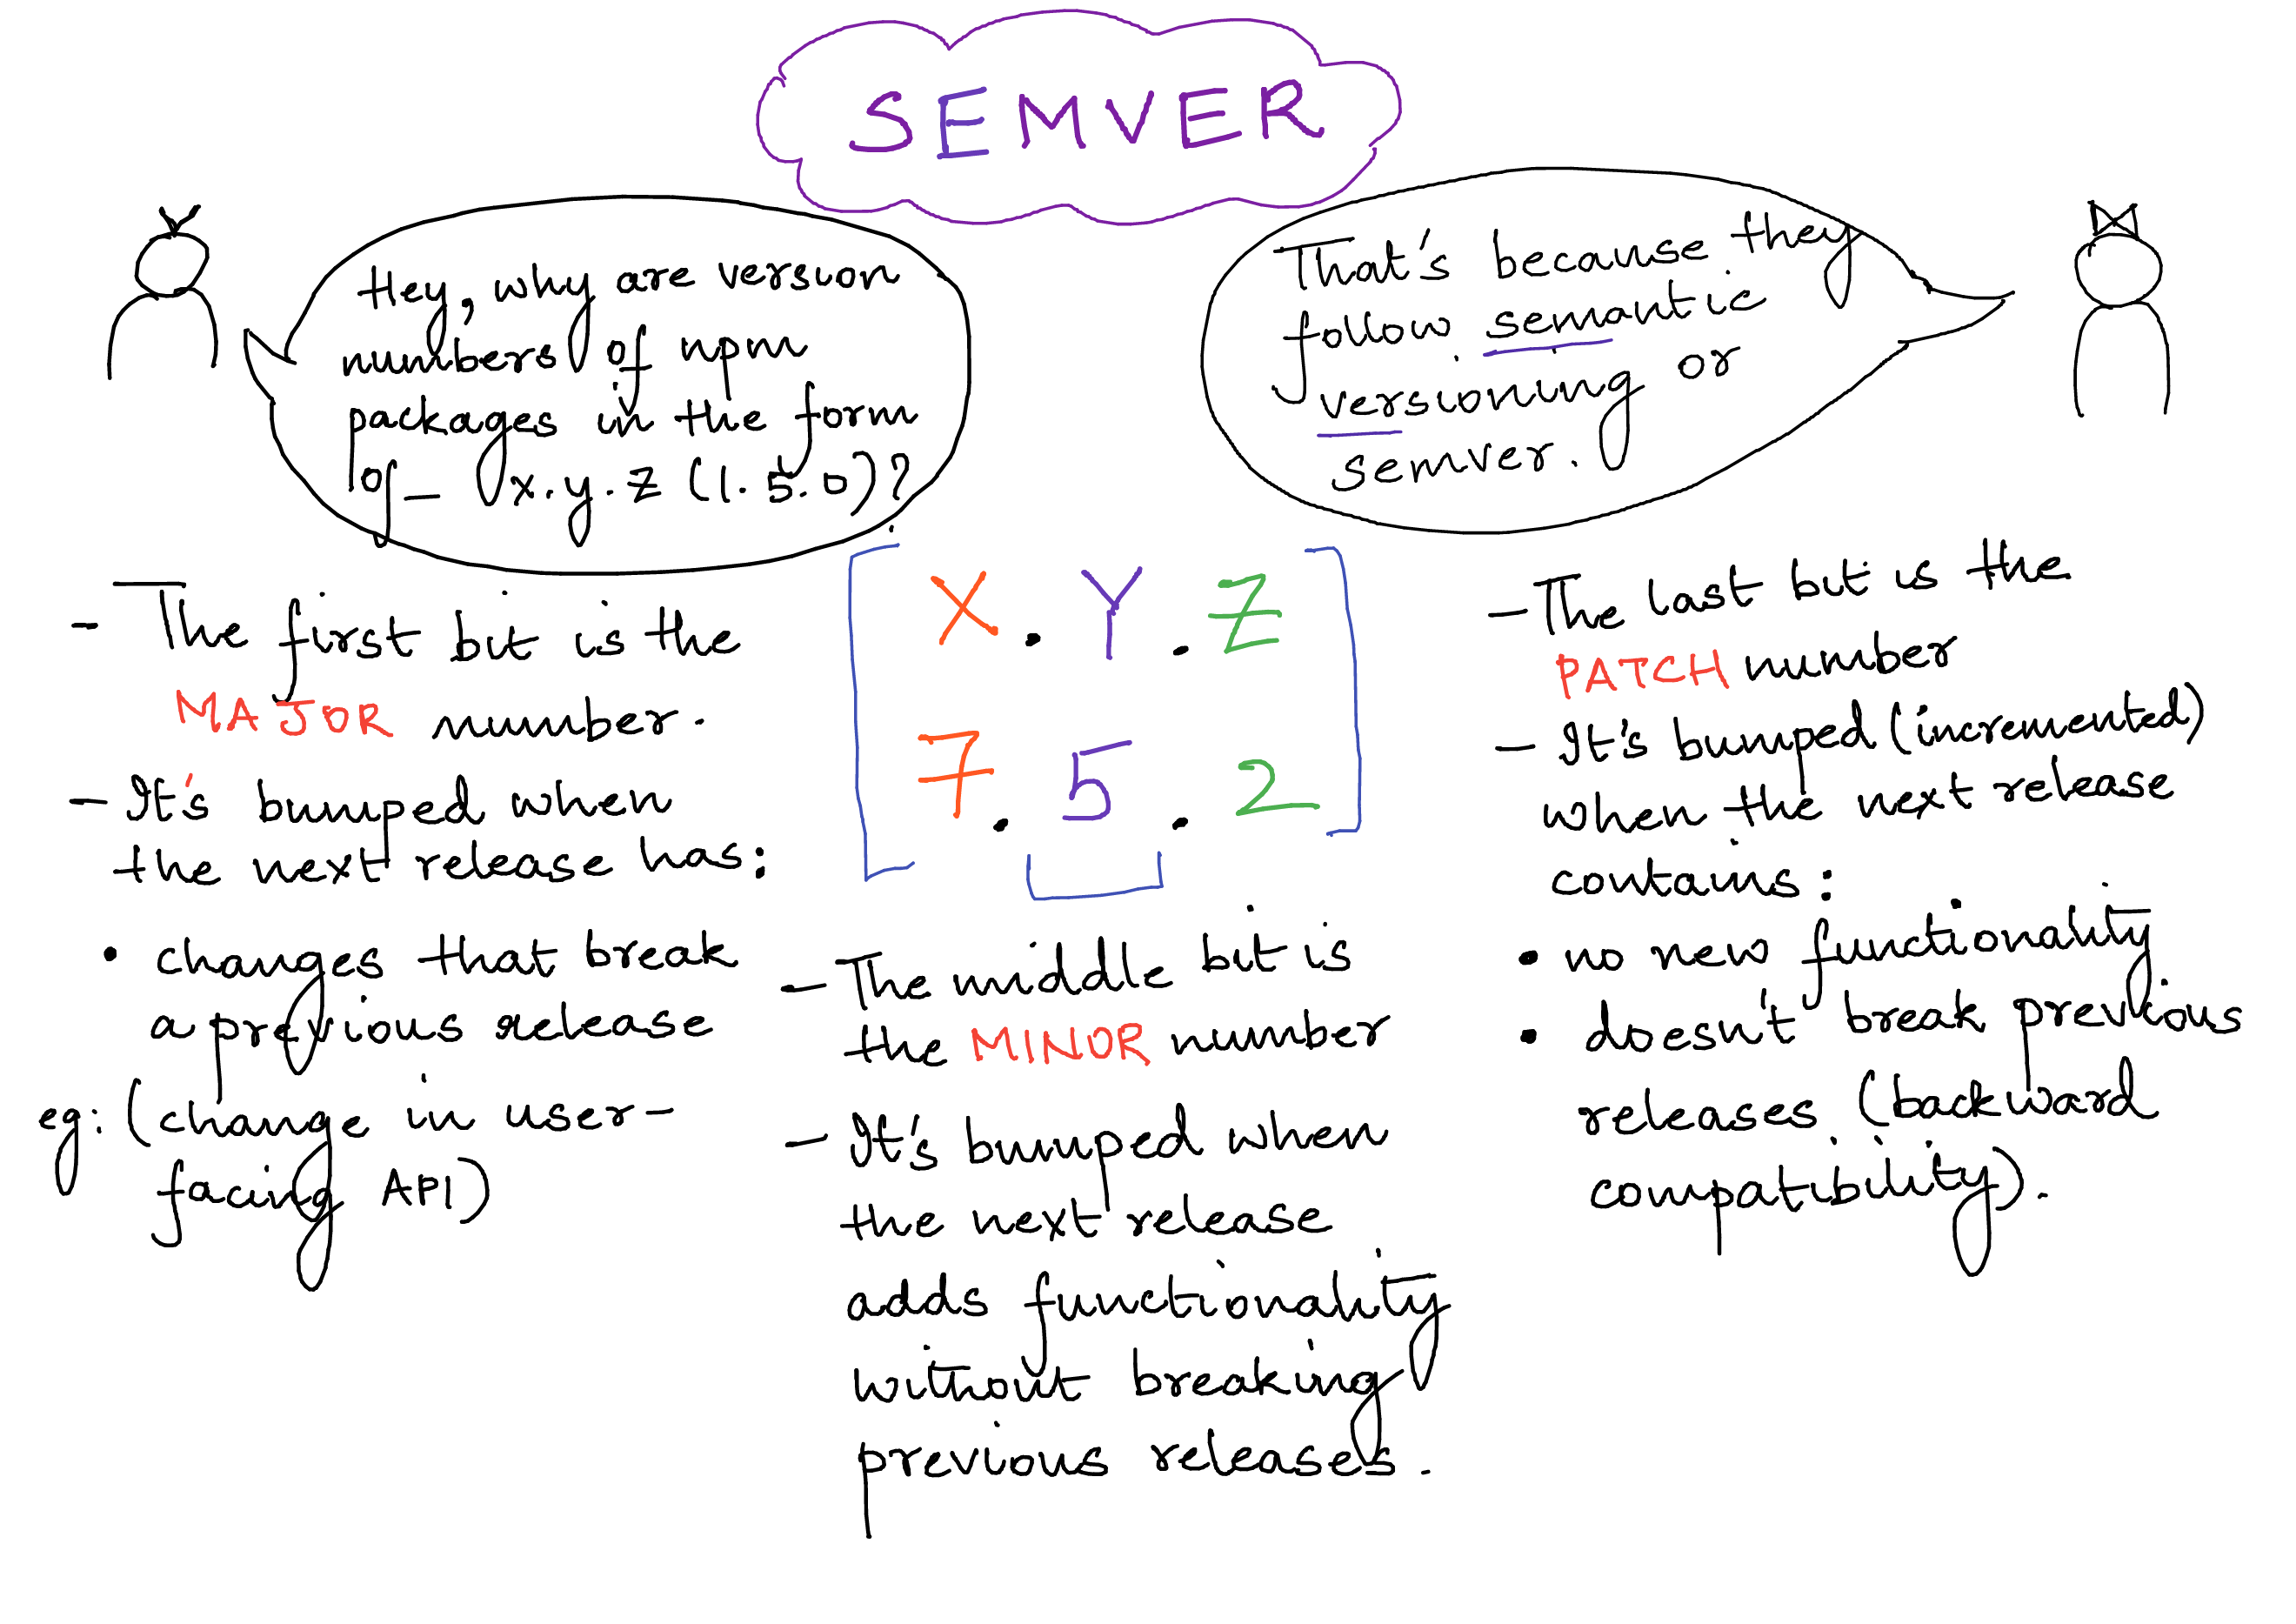 SEMVER
Hey, why are version
numbers of npm
packages in the form
of - x.y.z (1.5.0)?
That's because they
follow semantic
versioning or
semver.
- The first bit is the
MAJOR number.
- It's bumped when
the next release has:
• changes that break
a previous release
eg: (change in user-
facing API)
X.Y.Z
7.5.2
- The middle bit is
the MINOR number
- It's bumped when
the next release
adds functionality
without breaking
previous releases.
- The last bit is the
PATCH number
- It's bumped (incremented)
when the next release
contains:
• no new functionality
• doesn't break previous
releases (backward
compatibility).